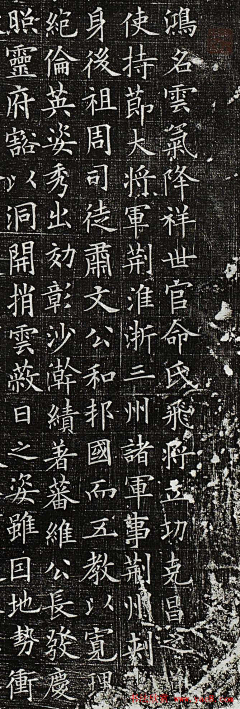 鴻名雲氣降祥世官命氏飛將立功克昌
使持節大將軍荆淮浙三州諸軍事荆州刺
身後祖周司徒肅文公和邦國而五教以寬理
絶倫英姿秀出効彰沙漠績著蕃維公長發慶
照靈府豁以洞開捎雲蔽日之姿雖曰地勢衝